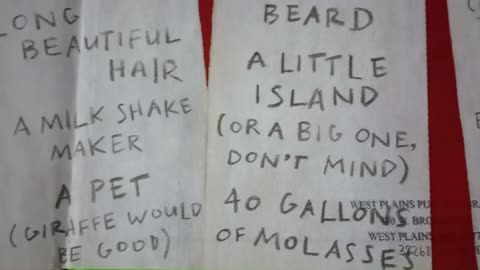 LONG
BEAUTIFUL
HAIR
A MILK SHAKE
MAKER
A PET
(GIRAFFE WOULD
BE GOOD)
BEARD
A LITTLE
ISLAND
(OR A BIG ONE,
DON'T MIND)
40 GALLONS
OF MOLASSES
WEST PLAINS
WEST PLAINS